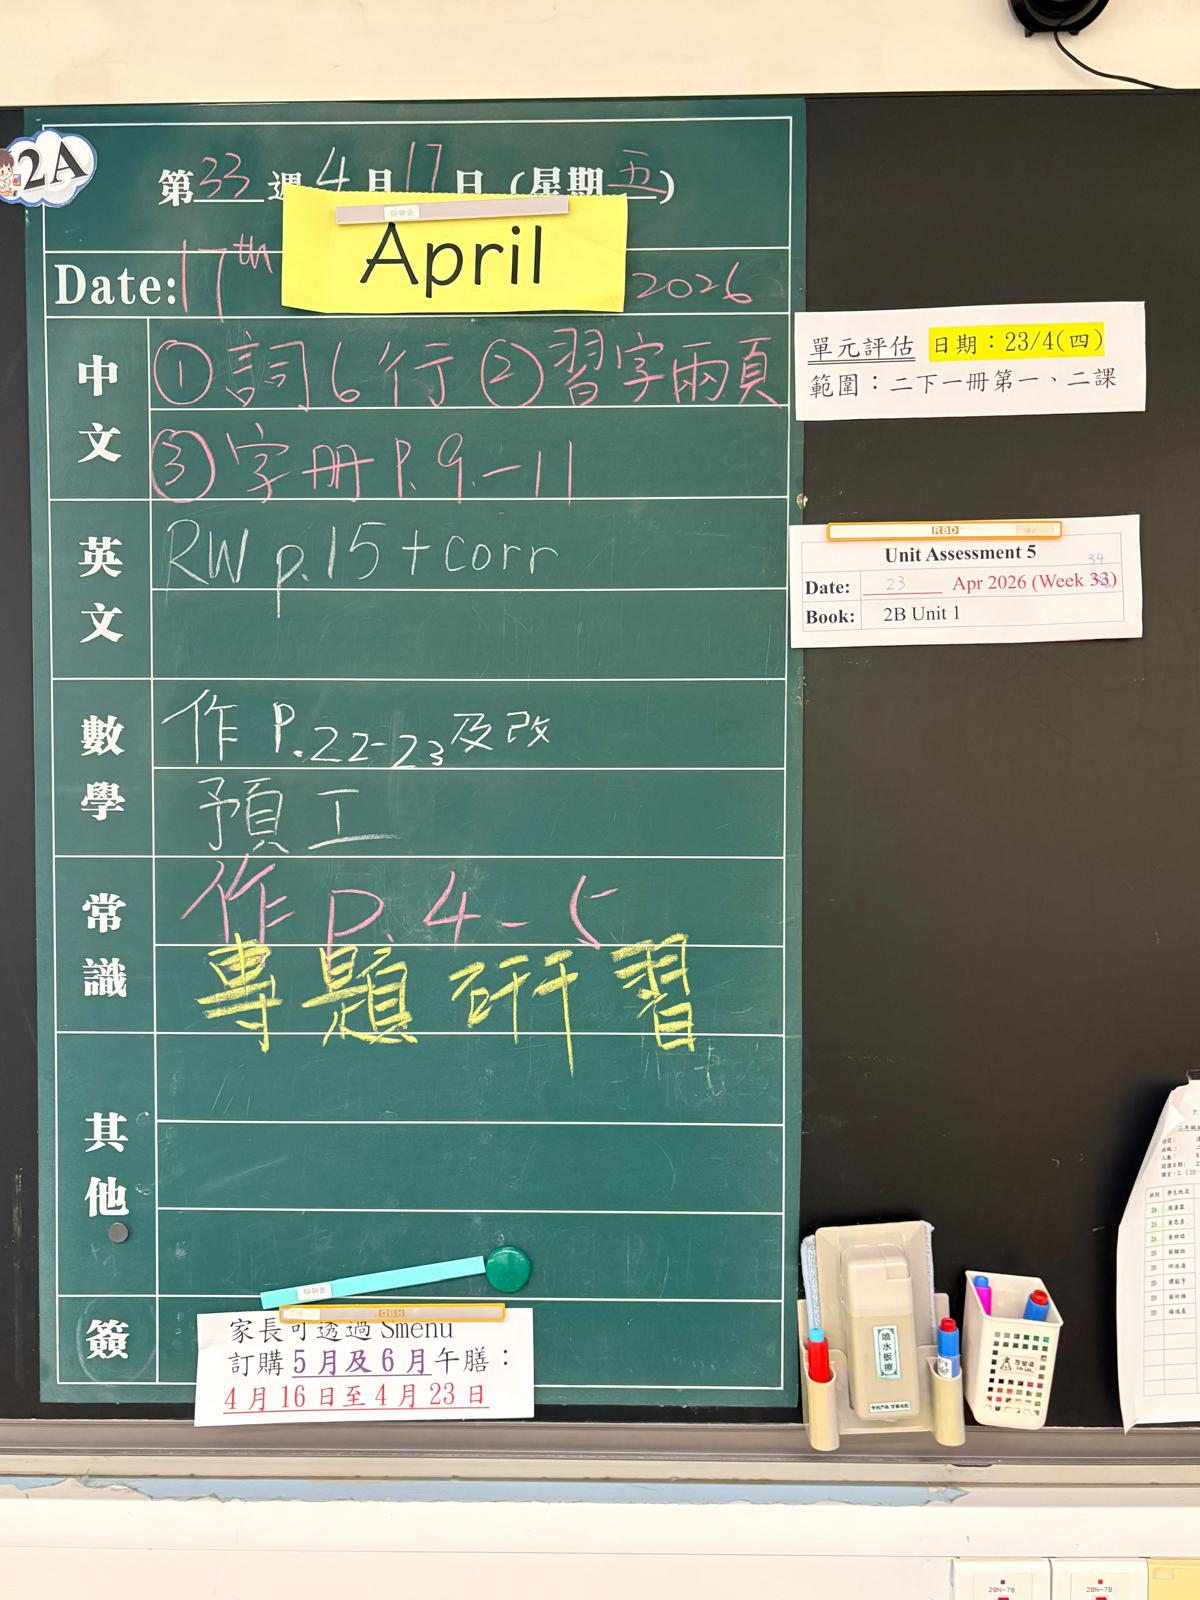 2A
第33週4月17日(星期五)
Date: 17th April 2026
中文
①詞6行 ②習字兩頁
③字冊P.9-11
英文
RW p.15+corr
數學
作 P.22-23及改
預工
常識
作 P.4-5
專題研習
其他
簽
家長可透過 Smenu
訂購5月及6月午膳:
4月16日至4月23日
單元評估 日期:23/4(四)
範圍:二下一冊第一、二課
RBD
Unit Assessment 5
Date: 23 Apr 2026 (Week 33) 34
Book: 2B Unit 1
RBD
噴水板擦
班別 學生姓名
2A
2A
2A
2D
2D
2D
2D
2D
2BN-7B
2BN-7B